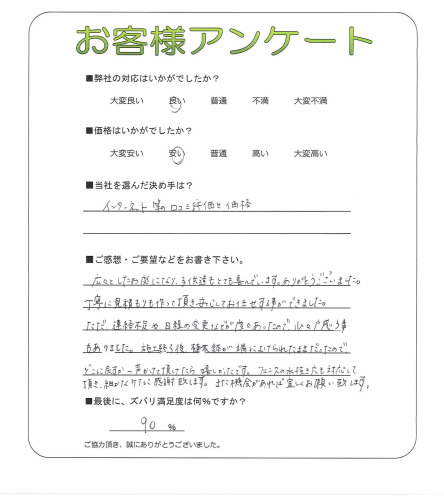 お客様アンケート
■弊社の対応はいかがでしたか？
大変良い 良い 普通 不満 大変不満
■価格はいかがでしたか？
大変安い 安い 普通 高い 大変高い
■当社を選んだ決め手は？
インターネット等の口コミ評価と価格
■ご感想・ご要望などをお書き下さい。
広々としたお庭になり、子供達もとても喜んでいます。ありがとうございました。
丁寧に見積もりも作って頂き安心してお任せする事ができました。
ただ、連絡不足や日程の変更などが度々あったので、少々戸惑う事
もありました。施工終了後、植木鉢が横によけられたままだったので、
どこに戻すか一声かけて頂けたら嬉しかったです。フェンスの水抜き穴も対応して
頂き、細かなケアに感謝致します。また機会があれば宜しくお願い致します。
■最後に、ズバリ満足度は何％ですか？
90 ％
ご協力頂き、誠にありがとうございました。